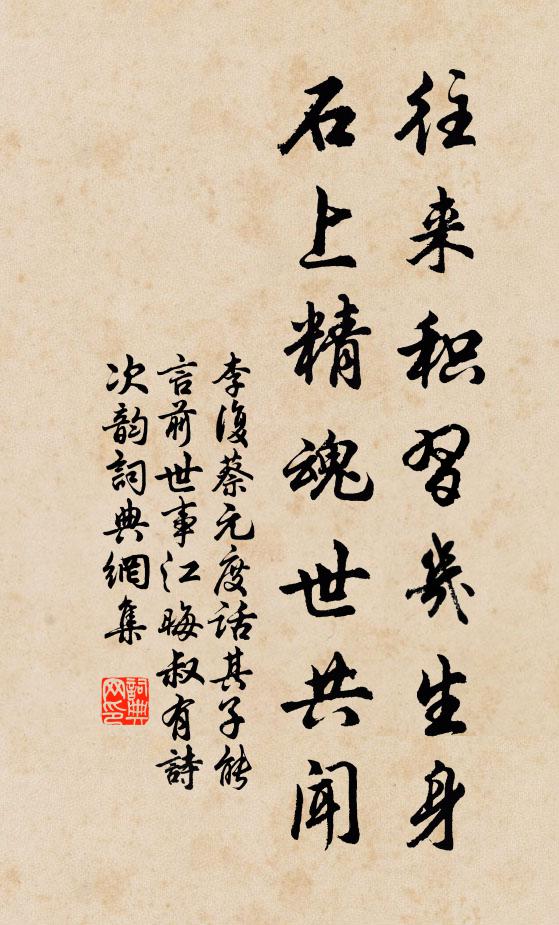 往来积習幾生身
石上精魂世共闻
李復蔡元度話其子能
言前世事江晦叔有詩
次韵詞典網集
詞典网印